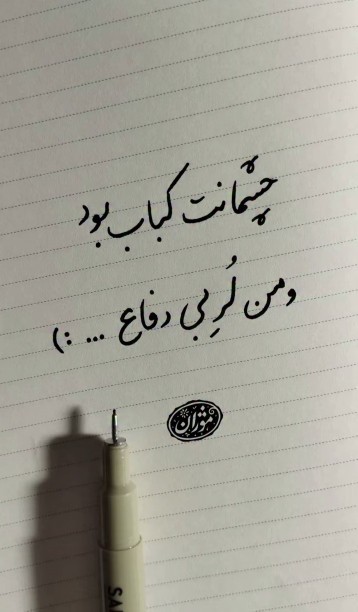 چشمانت کباب بود
و من لُرِ بی دفاع ... :)
مژگان
SA